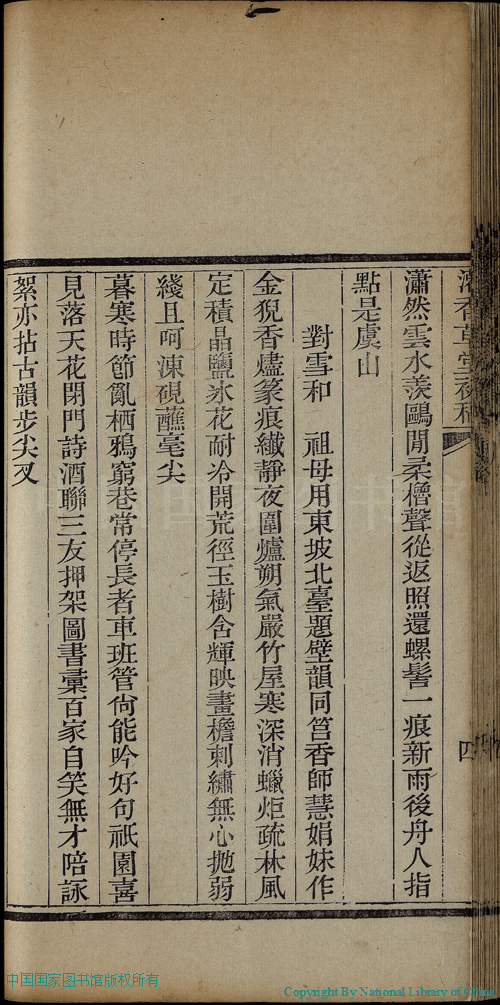 瀟然雲水羨鷗閒柔櫓聲從返照還螺髻一痕新雨後舟人指
點是虞山
對雪和　祖母用東坡北臺題壁韻同筥香師慧娟妹作
金猊香燼篆痕纖靜夜圍爐朔氣嚴竹屋寒深消蠟炬疏林風
定積晶鹽冰花耐冷開荒徑玉樹含輝映畫檐刺繡無心拋弱
綫且呵凍硯蘸毫尖
暮寒時節亂栖鴉窮巷常停長者車班管尙能吟好句祇園喜
見落天花閉門詩酒聯三友押架圖書彙百家自笑無才陪詠
絮亦拈古韻步尖叉
四
中国国家图书馆版权所有
Copyright By National Library of China